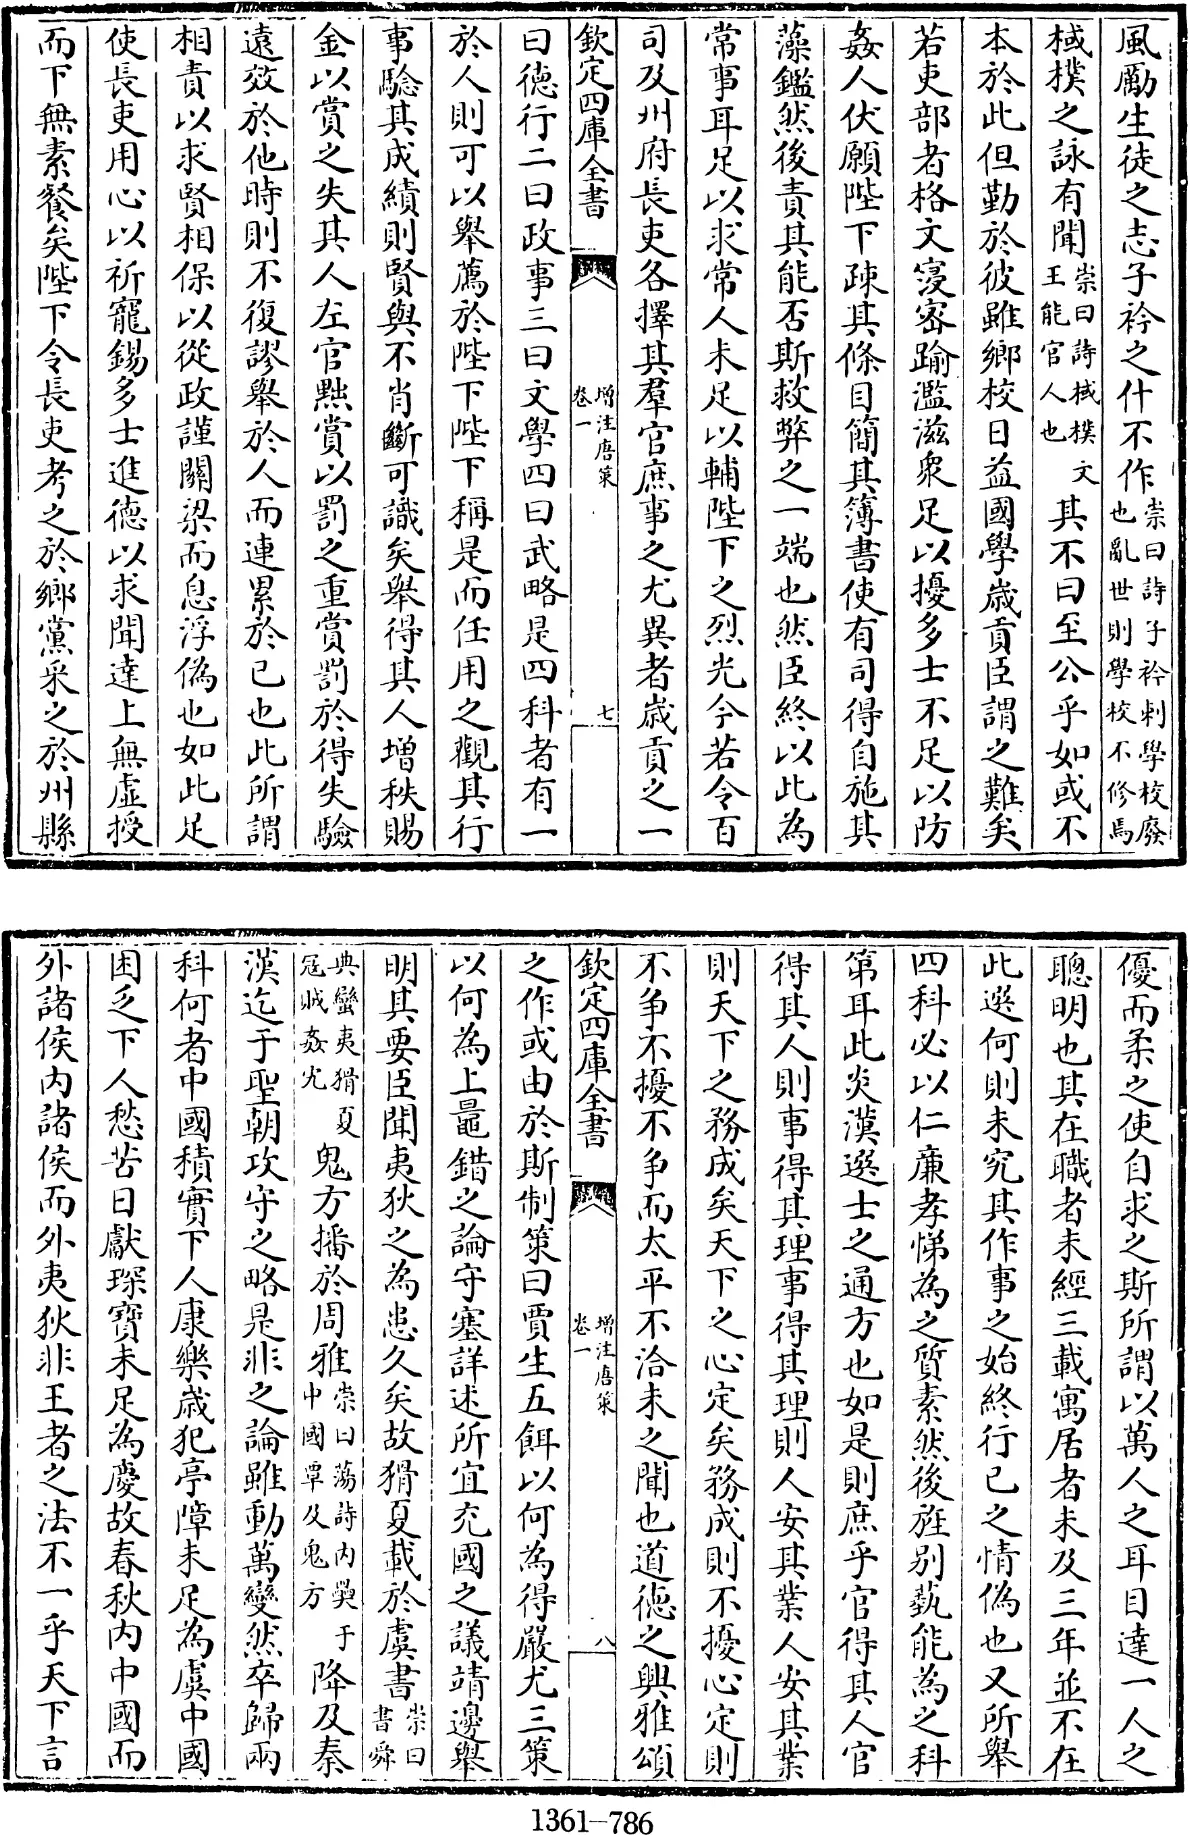 風勵生徒之志子衿之什不作崇曰詩子衿刺學校廢也亂世則學校不修焉
棫樸之詠有聞崇曰詩棫樸文王能官人也其不曰至公乎如或不
本於此但勤於彼雖鄉校日益國學歲貢臣謂之難矣
若吏部者格文寖密踰濫滋衆足以擾多士不足以防
姦人伏願陛下疎其條目簡其簿書使有司得自施其
藻鑑然後責其能否斯救弊之一端也然臣終以此為
常事耳足以求常人未足以輔陛下之烈光今若令百
司及州府長吏各擇其羣官庶事之尤異者歲貢之一
欽定四庫全書 增注唐策 卷一 七
曰德行二曰政事三曰文學四曰武略是四科者有一
於人則可以舉薦於陛下陛下稱是而任用之觀其行
事驗其成績則賢與不肖斷可識矣舉得其人增秩賜
金以賞之失其人左官黜賞以罰之重賞罰於得失驗
遠效於他時則不復謬舉於人而連累於已也此所謂
相責以求賢相保以從政謹關梁而息浮偽也如此足
使長吏用心以祈寵錫多士進德以求聞達上無虛授
而下無素餐矣陛下令長吏考之於鄉黨采之於州縣
優而柔之使自求之斯所謂以萬人之耳目達一人之
聰明也其在職者未經三載寓居者未及三年並不在
此選何則未究其作事之始終行已之情偽也又所舉
四科必以仁廉孝悌為之質素然後旌別藝能為之科
第耳此炎漢選士之通方也如是則庶乎官得其人官
得其人則事得其理事得其理則人安其業人安其業
則天下之務成矣天下之心定矣務成則不擾心定則
不爭不擾不爭而太平不洽未之聞也道德之興雅頌
欽定四庫全書 增注唐策 卷一 八
之作或由於斯制策曰賈生五餌以何為得嚴尤三策
以何為上鼂錯之論守塞詳述所宜充國之議靖邊舉
明其要臣聞夷狄之為患久矣故猾夏載於虞書崇曰書舜
典蠻夷猾夏冦賊姦宄鬼方播於周雅崇曰蕩詩内奰于中國覃及鬼方降及秦
漢迄于聖朝攻守之略是非之論雖動萬變然卒歸兩
科何者中國積實下人康樂歲犯亭障未足為虞中國
困乏下人愁苦日獻琛寶未足為慶故春秋内中國而
外諸侯内諸侯而外夷狄非王者之法不一乎天下言
1361-786